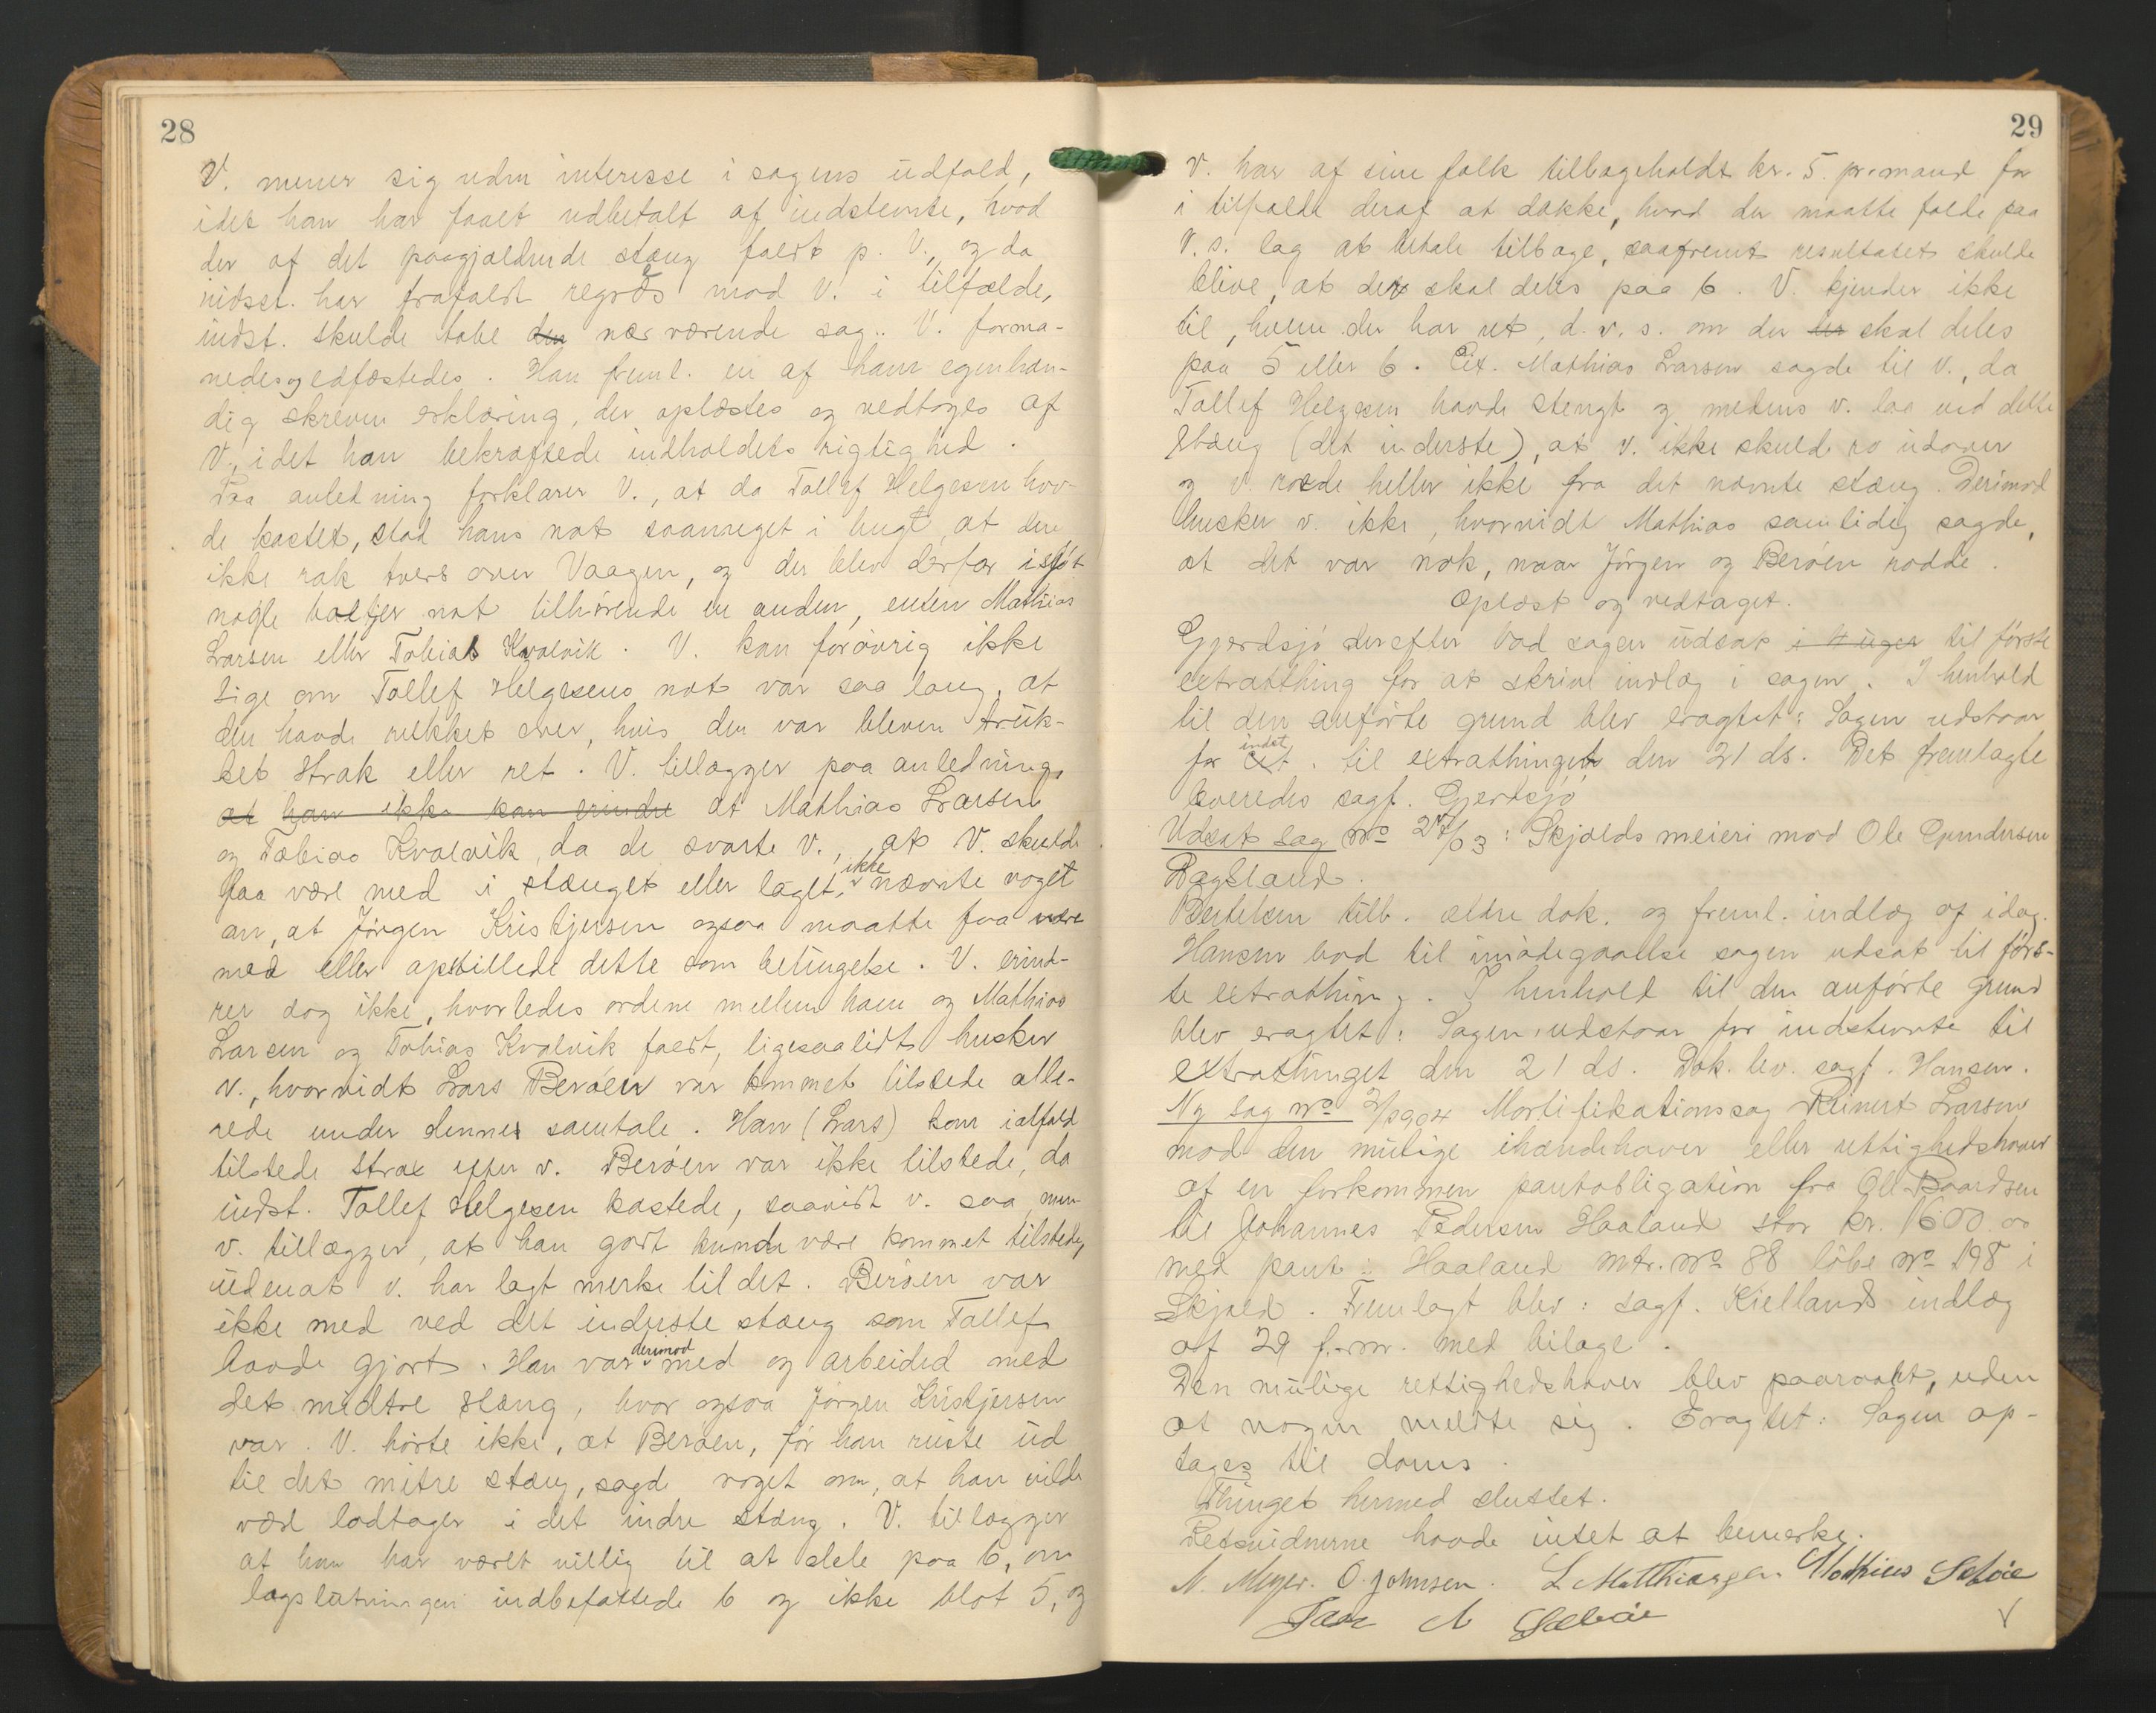 28
V. mener sig uden interesse i sagens udfald,
idet han har faaet udbetalt af indstevnte, hvad
der af det paagjældende stæng faldt p. V., og da
indst. har frafaldt regres mod V. i tilfælde,
indst. skulde tabe den nærværende sag. V. forma-
nedes og edfæstedes. Han freml. en af ham egenhæn-
dig skreven erklæring, der oplæstes og vedtoges af
V., idet han bekræftede indholdets rigtighed.
Paa anledning forklarer V., at da Tollef Helgesen hav-
de kastet, stod hans not saameget i bugt, at den
ikke rak tvers over Vaagen, og der blev derfor iskjøt
nogle not tilhørende en anden, enten Mathias
Larsen eller Tobias Kvalvik. V. kan forøvrig ikke
sige om Tollef Helgesens not var saa lang, at
den havde rukket over, hvis den var bleven truk-
ket strak eller ret. V. tillægger paa anledning,
at han ikke kan erindre at Mathias Larsen
og Tobias Kvalvik, da de svarte V., at V. skulde
faa være med i stænget eller laget, ikke nævnte noget
om, at Jørgen Kristjersen ogsaa maatte faa være
med eller opstillede dette som betingelse. V. erind-
rer dog ikke, hvorledes ordene mellem ham og Mathias
Larsen og Tobias Kvalvik faldt, ligesaalidt husker
v., hvorvidt Lars Berøen var kommet tilstede alle-
rede under denne samtale. Han (Lars) kom ialfald
tilstede strax efter v. Berøen var ikke tilstede, da
indst. Tollef Helgesen kastede, saavidt v. saa, men
v. tillægger, at han godt kunde være kommet tilstede,
uden at v. har lagt merke til det. Berøen var
ikke med ved det inderste stæng som Tollef
havde gjort. Han var derimod med og arbeided med
det midtre stæng, hvor ogsaa Jørgen Kristjersen
var. V. hørte ikke, at Berøen, før han reiste ud
til det mitre stæng, sagde noget om, at han vilde
være lodtager i det indre stæng. V. tillægger
at han har været villig til at dele paa 6, om
lagslutningen indbefattede 6 og ikke blot 5, og
29
V. har af sine folk tilbageholdt kr. 5. pr. mand for
i tilfælde deraf at dække, hvad der maatte falde paa
V.s. lag at betale tilbage, saafremt resultatet skulde
blive, at der skal deles paa 6. V. kjender ikke
til, hvem der har ret, d. v. s. om der skal deles
paa 5 eller 6. Cit. Mathias Larsen sagde til v., da
Tollef Helgesen havde stengt og medens v. laa ved dette
stæng (det inderste), at v. ikke skulde ro udover
og v. roede heller ikke fra det nævnte stæng. Derimod
husker v. ikke, hvorvidt Mathias samtidig sagde,
at det var nok, naar Jørgen og Berøen rodde.
Oplæst og vedtaget.
Gjerdsjø derefter bad sagen udsat i 4 uger til første
extrathing for at skrive indlæg i sagen. I henhold
til den anførte grund blev eragtet: Sagen udstaar
for cit. indst. til extrathinget den 21 ds. Det fremlagte
leveredes sagf. Gjerdsjø
Udsat sag No 27/03: Skjolds meieri mod Ole Gundersen
Dagsland.
Bertelsen tilb. ældre dok. og freml. indlæg af idag.
Hansen bad til imødegaaelse sagen udsat til førs-
te extrathing. I henhold til den anførte grund
blev eragtet: Sagen udstaar for indstevnte til
extrathinget den 21 ds. Dok. lev. sagf. Hansen.
Ny sag No 2/1904 Mortifikationssag Reinert Larsen
mod den mulige ihændehaver eller rettighedshaver
af en forkommen pantobligation fra Ole Baardsen
til Johannes Pedersen Haaland stor kr. 1600.00
med pant i Haaland mtr. No 88 løbe No 198 i
Skjold. Fremlagt blev: sagf. Kiellands indlæg
af 29 f. m. med bilage.
Den mulige rettighedshaver blev paaraabt, uden
at nogen meldte sig. Eragtet: Sagen op-
tages til doms.
Thinget hermed sluttet.
Retsvidnerne havde intet at bemerke.
N. Meyer. O. Johnsen. L Matthiasgen. Mathias Sebøe
N Sæbøe